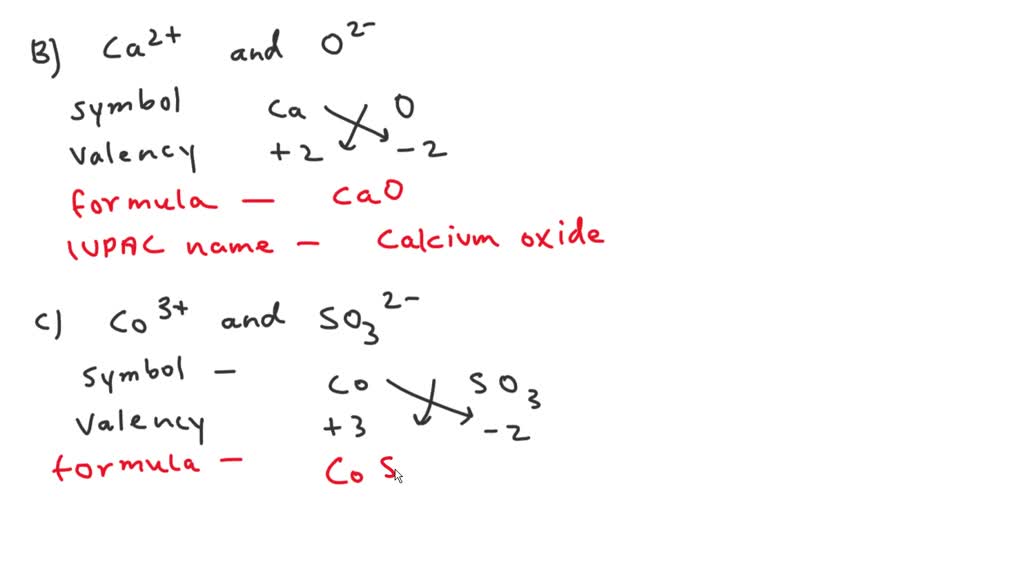 B) Ca²⁺ and O²⁻
symbol Ca O
Valency +2 -2
formula — CaO
IUPAC name — Calcium oxide
C) Co³⁺ and SO₃²⁻
Symbol — Co SO₃
Valency +3 -2
formula — Co S